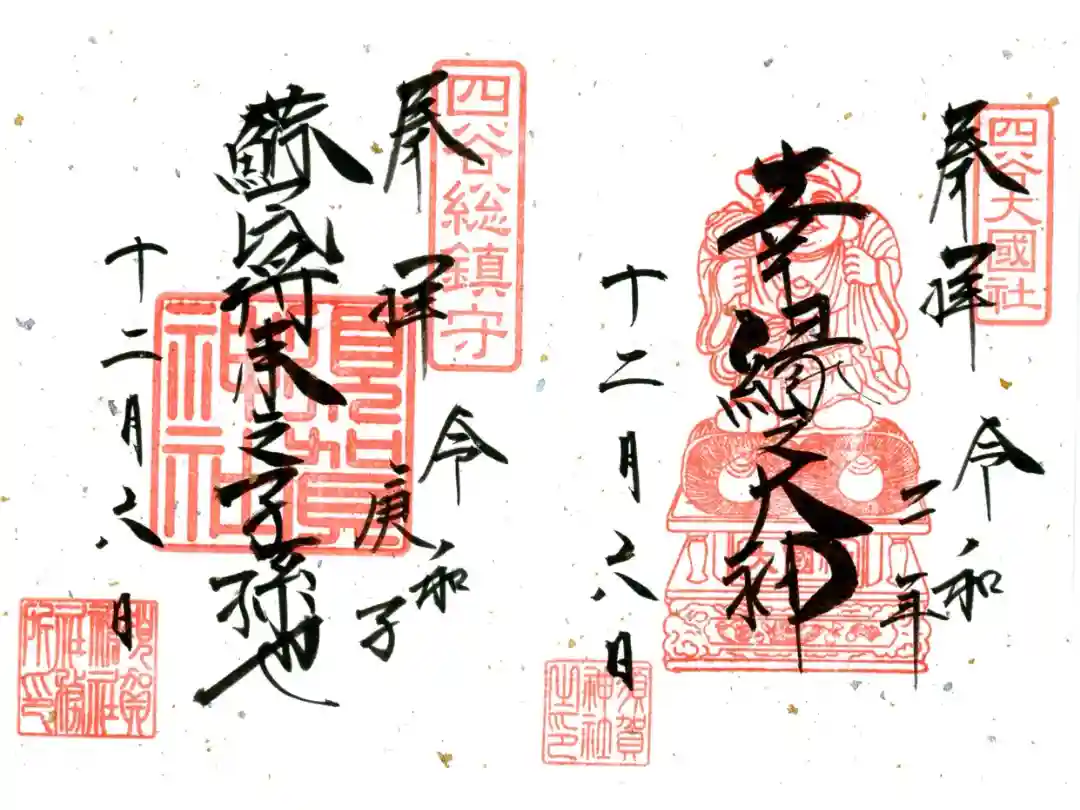 四谷大國社
奉拝
令和
二年
幸縁之大神
十二月六日
須賀神社之印
四谷総鎮守
奉拝
令和
庚子
蘇民将来之子孫也
十二月六日
須賀神社
須賀神社社務所印